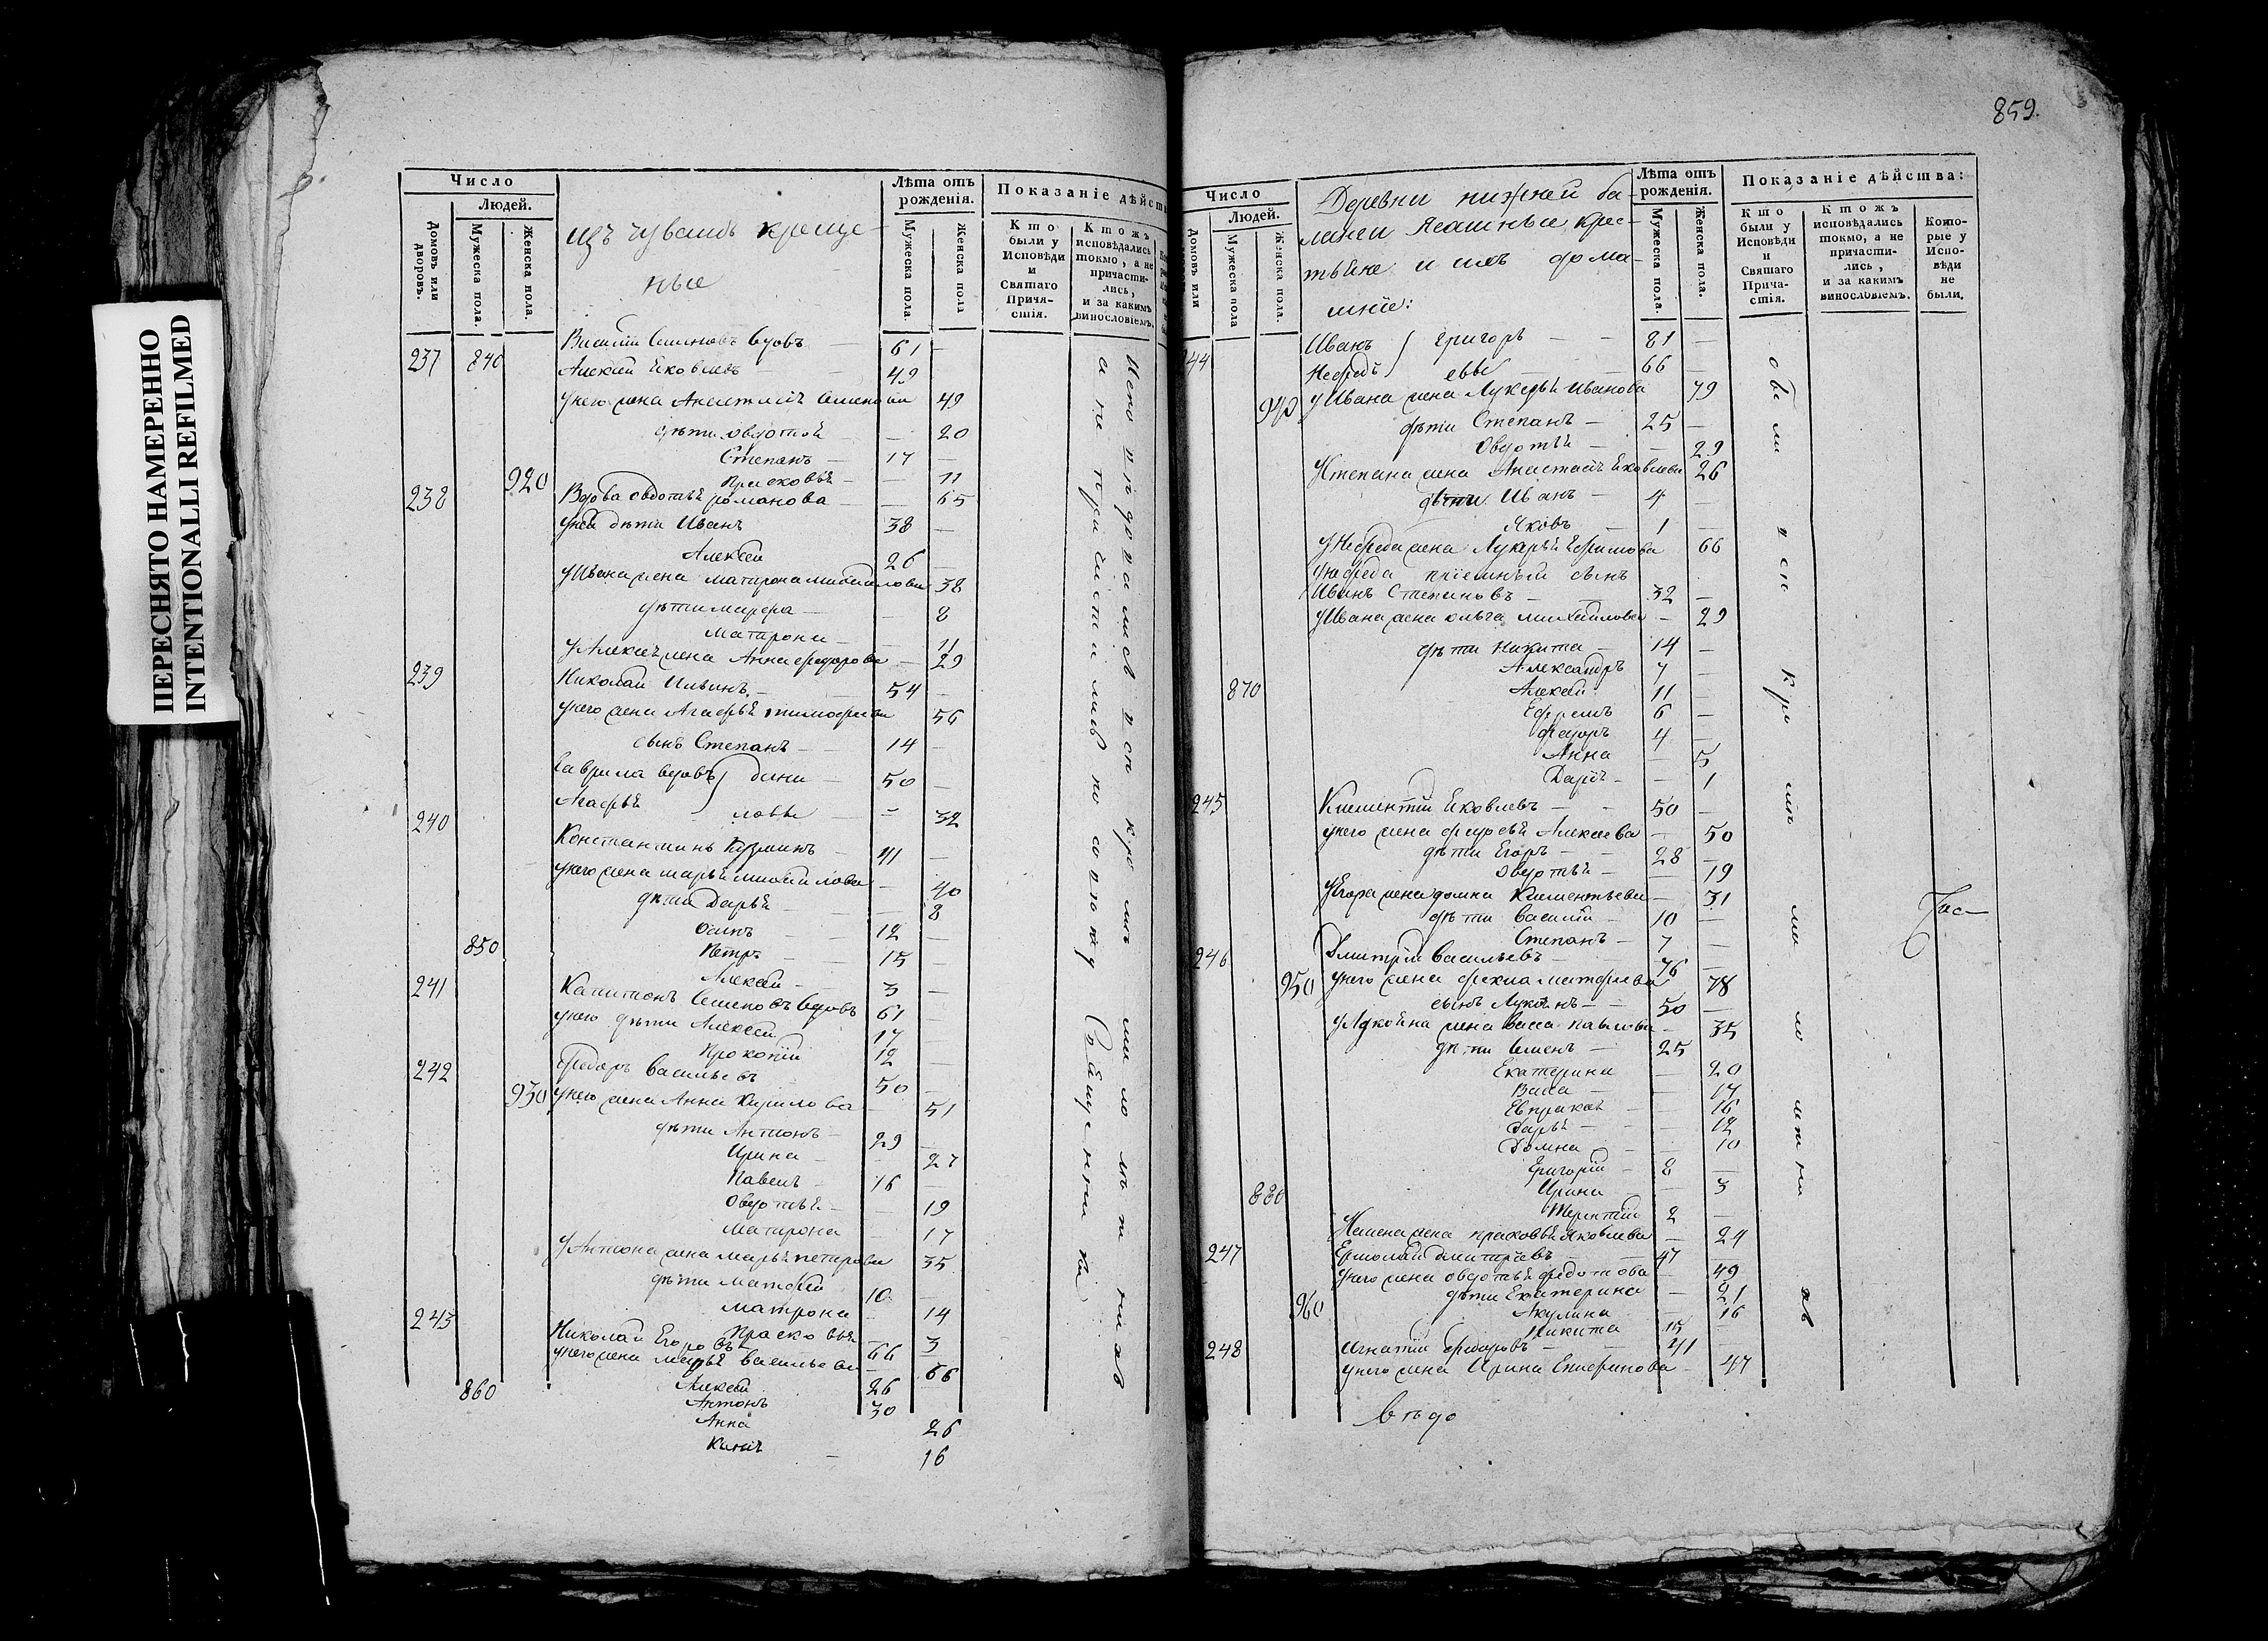 ПЕРЕСНЯТО НАМЕРЕННО
INTENTIONALLI REFILMED
Число
Людей.
Домовъ или дворовъ.
Мужеска пола.
Женска пола.
изъ чувашъ креще-
ные
Лѣта отъ рожденія.
Мужеска пола.
Женска пола
Показаніе дѣйст
Кто были у Исповѣди и Святаго Причастія.
Ктожъ исповѣдались токмо, а не причастились, и за какимъ винословіемъ.
237 840 Василій Семеновъ вдовъ — 61 —
Алексѣй Яковлевъ 49
у него жена Анастасія Семенова 49
дѣти Овдотья — 20
Степанъ — 17 —
920 Прасковья — — 11
238 Вдова Овдотья Романова — 65
у ней дѣти Иванъ 38 —
Алексѣй 26 —
у Ивана жена Матрона Михайлова 38
дѣти Марфа — 8
Матрона — 11
у Алексѣя жена Анна Федорова — 29
239 Николай Ильинъ — 54 —
у него жена Агафья Тимофеева 56
сынъ Степанъ — 14 —
Гаврила вдовъ дани — 50 —
Агафья ловы — 32
240 Константинъ Кузминъ — 41 —
у него жена Марья Михайлова — 40
дѣти Дарья — 8
Осипъ — 12 —
850 Петръ — 15 —
Алексѣй — 3 —
241 Капитонъ Семеновъ вдовъ 61 —
у него дѣти Алексѣй 17 —
Прокопій 12 —
242 Федоръ Васильевъ 50 —
930 у него жена Анна Кирилова — 51
дѣти Антонъ — 29 —
Ирина — 27
Павелъ — 16 —
Овдотья — 19
Матрона — 17
у Антона жена Марья Петрова 35
дѣти Матвѣй 10 —
Матрона 14
Прасковья — 3
243 Николай Егоровъ 66
у него жена Марья Васильева — 66
860 Алексѣй 26
Антонъ 30
Анна 26
16
Исповѣдались всѣ кромѣ малолѣтнихъ
а не причастились по
859.
Число
Людей.
Домовъ или
Мужеска пола
Женска пола.
Деревни нижней ба-
ланги Ясашные, крес-
тьяне и ихъ дома-
шніе:
Лѣта отъ рожденія.
Мужеска пола.
Женска пола.
Показаніе дѣйства:
Кто были у Исповѣди и Святаго Причастія.
Ктожъ исповѣдались токмо, а не причастились, и за какимъ винословіемъ.
Которые у Исповѣди не были.
44 Иванъ григорь — — 81 —
Нефедъ евы 66
940 у Ивана жена Лукерья Иванова 79
дѣти Степанъ — 25 —
Овдотья — — 29
у Степана жена Анастасія Яковлева 26
дѣти Иванъ — 4 —
Яковъ — 1 —
у Нефеда жена Лукерья Ефимова 66
у Нефеда пріемный сынъ
Иванъ Степановъ — 32 —
у Ивана жена Ольга Михайлова — 29
дѣти Никита — 14 —
Александръ 7 —
870 Алексѣй 11 —
Ефремъ 6 —
Федоръ 4 —
Анна — 5
Дарья — — 1
245 Климентій Яковлевъ — — 50 —
у него жена Федосья Алексѣева — 50
дѣти Егоръ — 28 —
Овдотья — — 19
у Егора жена Домна Климентьева — 31
дѣти Василій — 10 —
Степанъ — 7 —
246 Дмитрій Васильевъ — 76 —
950 у него жена Фекла Матфеева 78
сынъ Лукоянъ — 50 —
у Лукояна жена Васса Павлова — 35
дѣти Семенъ — 25
Екатерина — 20
Васса — — 17
Евпраксія — — 16
Дарья — — 12
Домна — 10
Григорій — 8 —
880 Ирина — 3
Терентій 2 —
у Семена жена Прасковья Яковлева — 24
247 Ермолай Дмитріевъ — 47 —
у него жена Овдотья Федотова — 49
дѣти Екатерина — 21
960 Акулина — 16
Никита 15 —
248 Игнатій Федоровъ — — 41 —
у него жена Ирина — 47
вѣдо